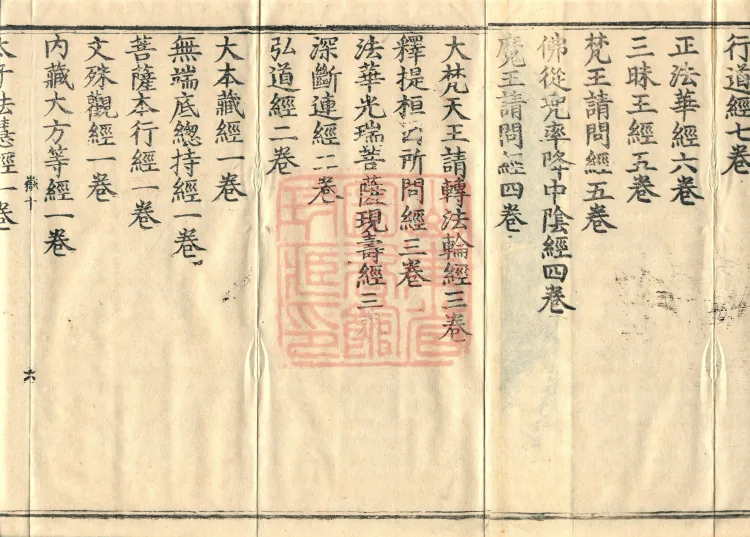 行道經七卷
正法華經六卷
三昧王經五卷
梵王請問經五卷
佛從兜率降中陰經四卷
魔王請問經四卷
大梵天王請轉法輪經三卷
釋提桓因所問經三卷
法華光瑞菩薩現壽經三
深斷連經二卷
弘道經二卷
大本藏經一卷
無端底總持經一卷
菩薩本行經一卷
文殊觀經一卷
內藏大方等經一卷
六
太子法慧經一卷